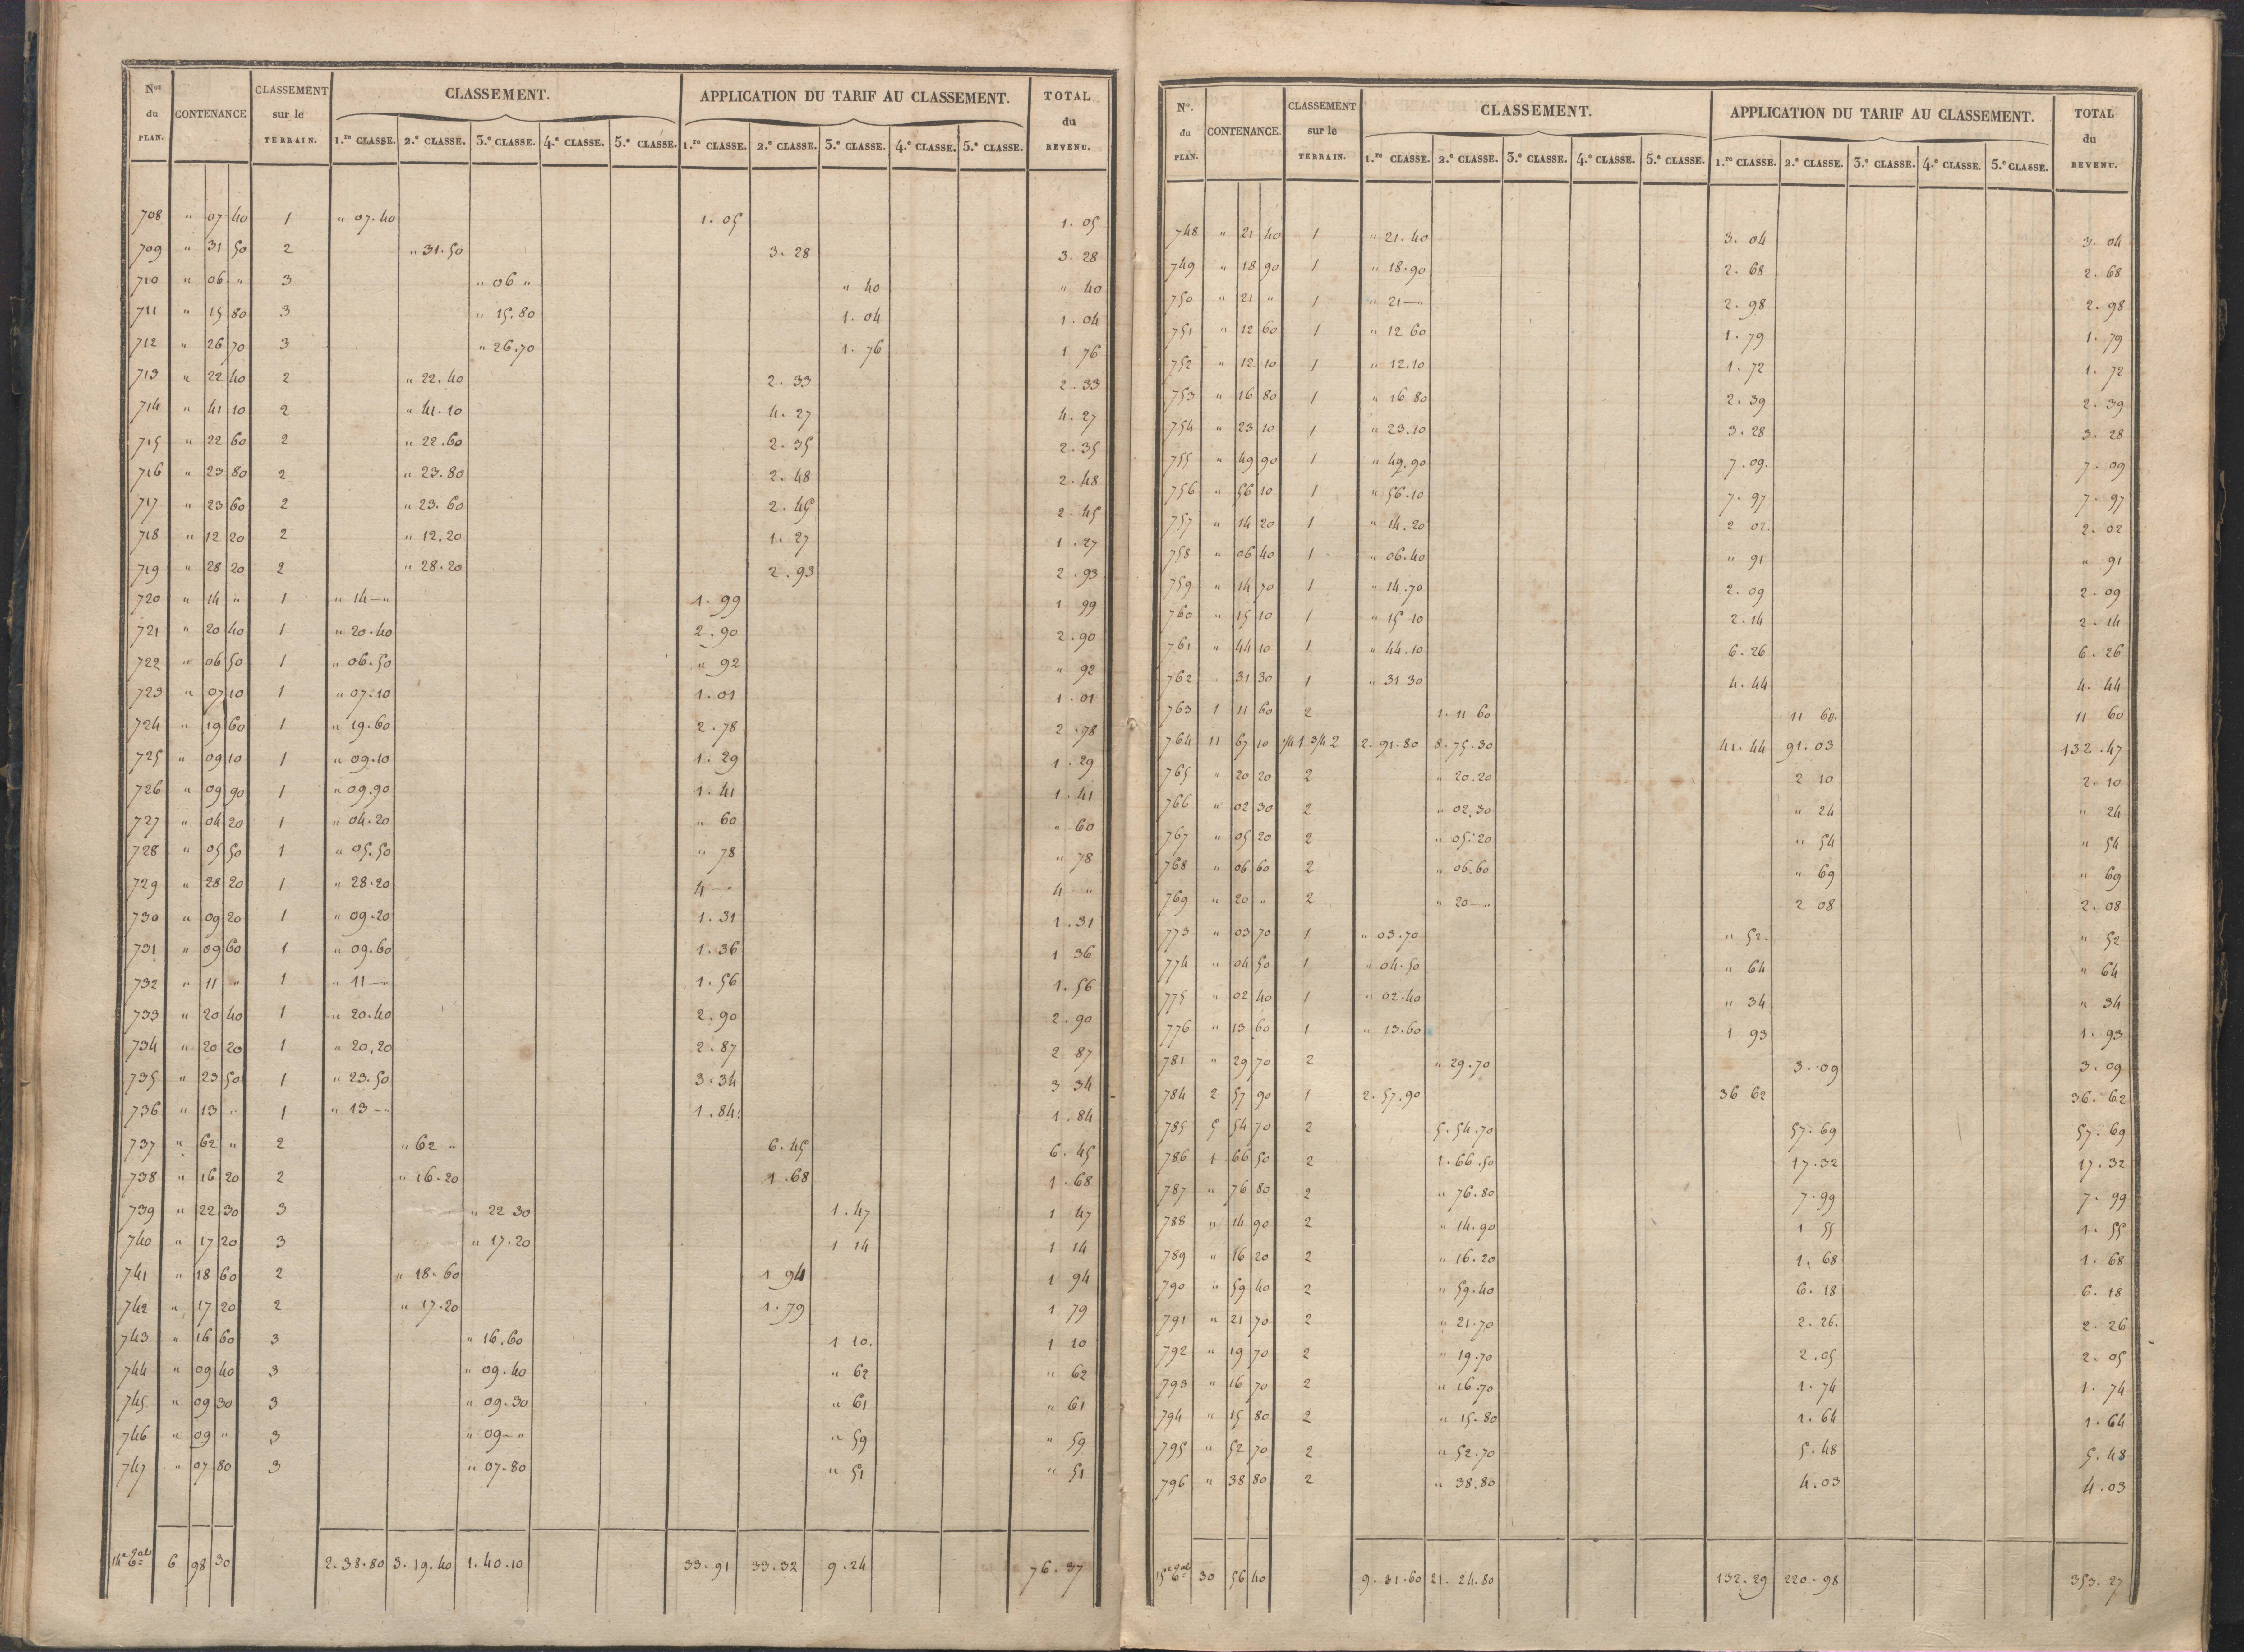 Nos du PLAN. CONTENANCE CLASSEMENT sur le TERRAIN. CLASSEMENT. APPLICATION DU TARIF AU CLASSEMENT. TOTAL du REVENU.
1.re CLASSE. 2.e CLASSE. 3.e CLASSE. 4.e CLASSE. 5.e CLASSE. 1.re CLASSE. 2.e CLASSE. 3.e CLASSE. 4.e CLASSE. 5.e CLASSE.
708 " 07 40 1 " 07.40 1.05 1.05
709 " 31 50 2 " 31.50 3.28 3.28
710 " 06 " 3 " 06 " " 40 " 40
711 " 15 80 3 " 15.80 1.04 1.04
712 " 26 70 3 " 26.70 1.76 1 76
713 " 22 40 2 " 22.40 2.33 2.33
714 " 41 10 2 " 41.10 4.27 4.27
715 " 22 60 2 " 22.60 2.35 2.35
716 " 23 80 2 " 23.80 2.48 2.48
717 " 23 60 2 " 23.60 2.45 2.45
718 " 12 20 2 " 12.20 1.27 1.27
719 " 28 20 2 " 28.20 2.93 2.93
720 " 14 " 1 " 14 — " 1.99 1 99
721 " 20 40 1 " 20.40 2.90 2.90
722 " 06 50 1 " 06.50 " 92 " 92
723 " 07 10 1 " 07.10 1.01 1.01
724 " 19 60 1 " 19.60 2.78 2.78
725 " 09 10 1 " 09.10 1.29 1.29
726 " 09 90 1 " 09.90 1.41 1.41
727 " 04 20 1 " 04.20 " 60 " 60
728 " 05 50 1 " 05.50 " 78 " 78
729 " 28 20 1 " 28.20 4 — " 4 — "
730 " 09 20 1 " 09.20 1.31 1.31
731 " 09 60 1 " 09.60 1.36 1 36
732 " 11 " 1 " 11 — " 1.56 1.56
733 " 20 40 1 " 20.40 2.90 2.90
734 " 20 20 1 " 20.20 2.87 2 87
735 " 23 50 1 " 23.50 3.34 3 34
736 " 13 " 1 " 13 — " 1.84 1.84
737 " 62 " 2 " 62 " 6.45 6.45
738 " 16 20 2 " 16.20 1.68 1.68
739 " 22 30 3 " 22 30 1.47 1 47
740 " 17 20 3 " 17.20 1 14 1 14
741 " 18 60 2 " 18.60 1 94 1 94
742 " 17 20 2 " 17.20 1.79 1 79
743 " 16 60 3 " 16.60 1 10. 1 10
744 " 09 40 3 " 09.40 " 62 " 62
745 " 09 30 3 " 09.30 " 61 " 61
746 " 09 " 3 " 09 — " " 59 " 59
747 " 07 80 3 " 07.80 " 51 " 51
6 98 30 2.38.80 3.19.40 1.40.10 33.91 33.32 9.24 76.37
No. du PLAN. CONTENANCE. CLASSEMENT sur le TERRAIN. CLASSEMENT. APPLICATION DU TARIF AU CLASSEMENT. TOTAL du REVENU.
1.re CLASSE. 2.e CLASSE. 3.e CLASSE. 4.e CLASSE. 5.e CLASSE. 1.re CLASSE. 2.e CLASSE. 3.e CLASSE. 4.e CLASSE. 5.e CLASSE.
748 " 21 40 1 " 21.40 3.04 3.04
749 " 18 90 1 " 18.90 2.68 2.68
750 " 21 " 1 " 21 — " 2.98 2.98
751 " 12 60 1 " 12 60 1.79 1.79
752 " 12 10 1 " 12.10 1.72 1.72
753 " 16 80 1 " 16 80 2.39 2.39
754 " 23 10 1 " 23.10 3.28 3.28
755 " 49 90 1 " 49.90 7.09. 7.09
756 " 56 10 1 " 56.10 7.97 7.97
757 " 14 20 1 " 14.20 2 02. 2.02
758 " 06 40 1 " 06.40 " 91 " 91
759 " 14 70 1 " 14.70 2.09 2.09
760 " 15 10 1 " 15 10 2.14 2.14
761 " 44 10 1 " 44.10 6.26 6.26
762 " 31 30 1 " 31 30 4.44 4.44
763 1 11 60 2 1.11 60 11 60. 11 60
764 11 67 10 1/4 1. 3/4 2 2.91.80 8.75.30 41.44 91.03 132.47
765 " 20 20 2 " 20.20 2 10 2.10
766 " 02 30 2 " 02.30 " 24 " 24
767 " 05 20 2 " 05.20 " 54 " 54
768 " 06 60 2 " 06.60 " 69 " 69
769 " 20 " 2 " 20 — " 2 08 2.08
773 " 03 70 1 " 03.70 " 52. " 52
774 " 04 50 1 " 04.50 " 64 " 64
775 " 02 40 1 " 02.40 " 34 " 34
776 " 13 60 1 " 13.60 1 93 1.93
781 " 29 70 2 " 29.70 3.09 3.09
784 2 57 90 1 2.57.90 36 62 36.62
785 5 54 70 2 5.54.70 57.69 57.69
786 1 66 50 2 1.66.50 17.32 17.32
787 " 76 80 2 " 76.80 7.99 7.99
788 " 14 90 2 " 14.90 1 55 1.55
789 " 16 20 2 " 16.20 1.68 1.68
790 " 59 40 2 " 59.40 6.18 6.18
791 " 21 70 2 " 21.70 2.26. 2.26
792 " 19 70 2 " 19.70 2.05 2.05
793 " 16 70 2 " 16.70 1.74 1.74
794 " 15 80 2 " 15.80 1.64 1.64
795 " 52 70 2 " 52.70 5.48 5.48
796 " 38 80 2 " 38.80 4.03 4.03
30 56 40 9.31.60 21.24.80 132.29 220.98 353.27